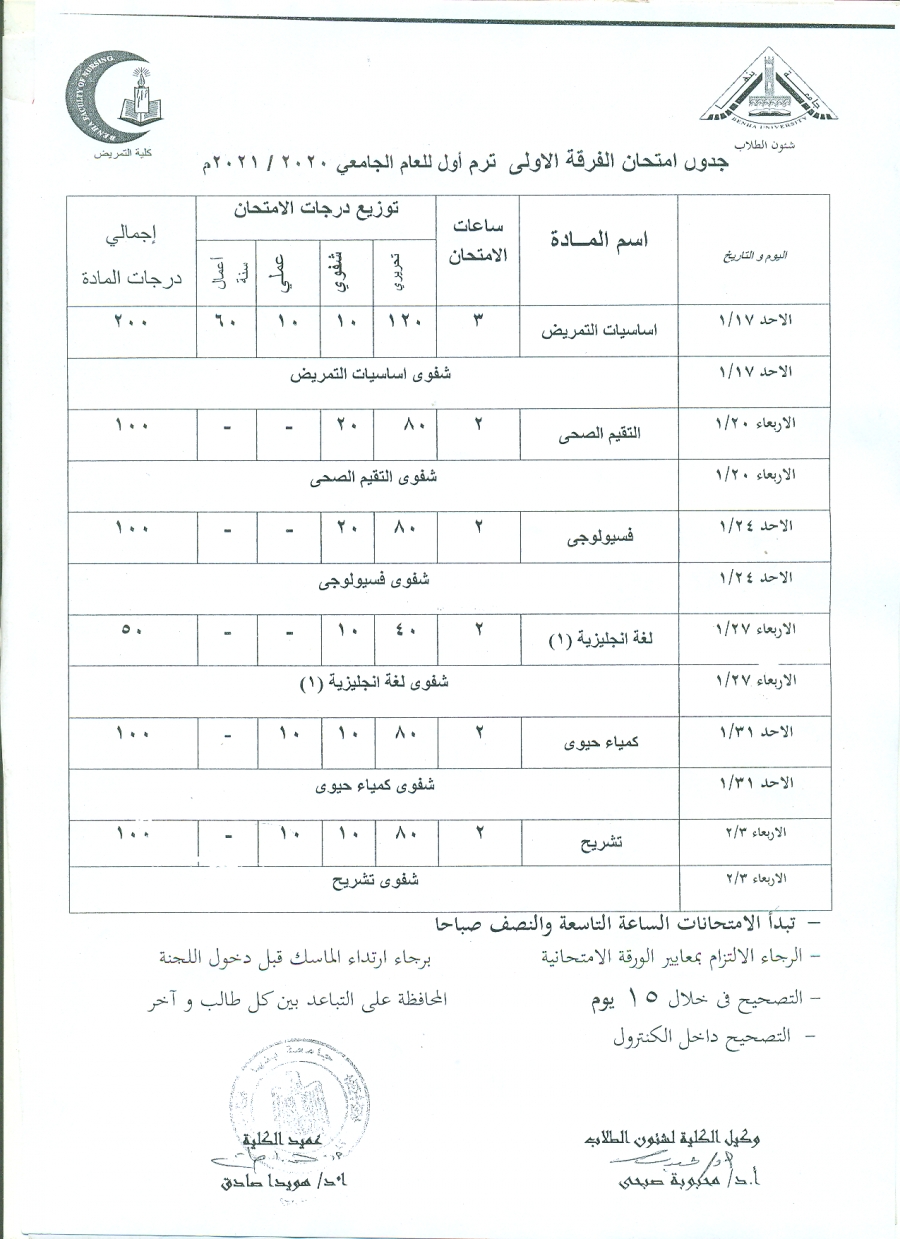 BENHA FACULTY OF NURSING
كلية التمريض
جامعة بنها
BENHA UNIVERSITY
شئون الطلاب
جدول امتحان الفرقة الاولى ترم أول للعام الجامعي ٢٠٢٠ / ٢٠٢١م
اليوم و التاريخ
اسم المــادة
ساعات الامتحان
توزيع درجات الامتحان
إجمالي درجات المادة
تحريري
شفوي
عملي
اعمال سنة
الاحد ١/١٧ اساسيات التمريض ٣ ١٢٠ ١٠ ١٠ ٦٠ ٢٠٠
الاحد ١/١٧ شفوى اساسيات التمريض
الاربعاء ١/٢٠ التقيم الصحى ٢ ٨٠ ٢٠ - - ١٠٠
الاربعاء ١/٢٠ شفوى التقيم الصحى
الاحد ١/٢٤ فسيولوجى ٢ ٨٠ ٢٠ - - ١٠٠
الاحد ١/٢٤ شفوى فسيولوجى
الاربعاء ١/٢٧ لغة انجليزية (١) ٢ ٤٠ ١٠ - - ٥٠
الاربعاء ١/٢٧ شفوى لغة انجليزية (١)
الاحد ١/٣١ كمياء حيوى ٢ ٨٠ ١٠ ١٠ - ١٠٠
الاحد ١/٣١ شفوى كمياء حيوى
الاربعاء ٢/٣ تشريح ٢ ٨٠ ١٠ ١٠ - ١٠٠
الاربعاء ٢/٣ شفوى تشريح
– تبدأ الامتحانات الساعة التاسعة والنصف صباحا
– الرجاء الالتزام بمعايير الورقة الامتحانية برجاء ارتداء الماسك قبل دخول اللجنة
– التصحيح فى خلال ١٥ يوم المحافظة على التباعد بين كل طالب و آخر
– التصحيح داخل الكنترول
جامعة بنها
وكيل الكلية لشئون الطلاب
أ.د/ محبوبة صبحى
عميد الكلية
ا.د/ هويدا صادق